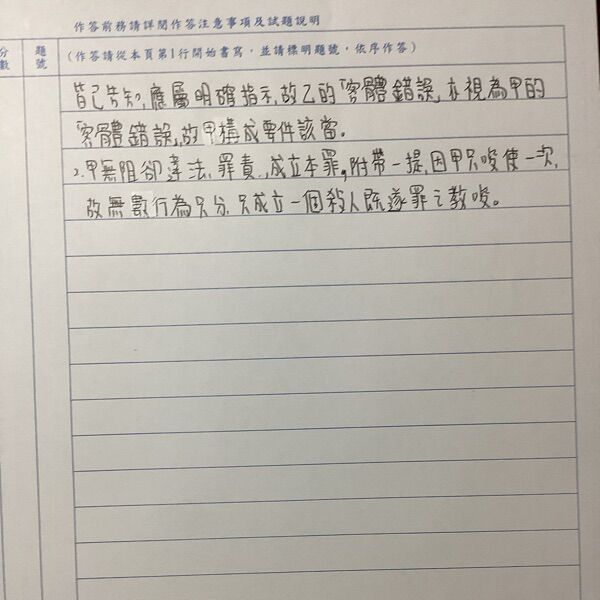 作答前務請詳閱作答注意事項及試題說明
分數
題號
(作答請從本頁第1行開始書寫，並請標明題號，依序作答)
皆已告知,應屬明確指示,故乙的「客體錯誤」亦視為甲的
「客體錯誤」,故甲構成要件該當。
2.甲無阻卻違法、罪責,成立本罪。附帶一提,因甲只唆使一次,
故無數行為只分,只成立一個殺人既遂罪之教唆。